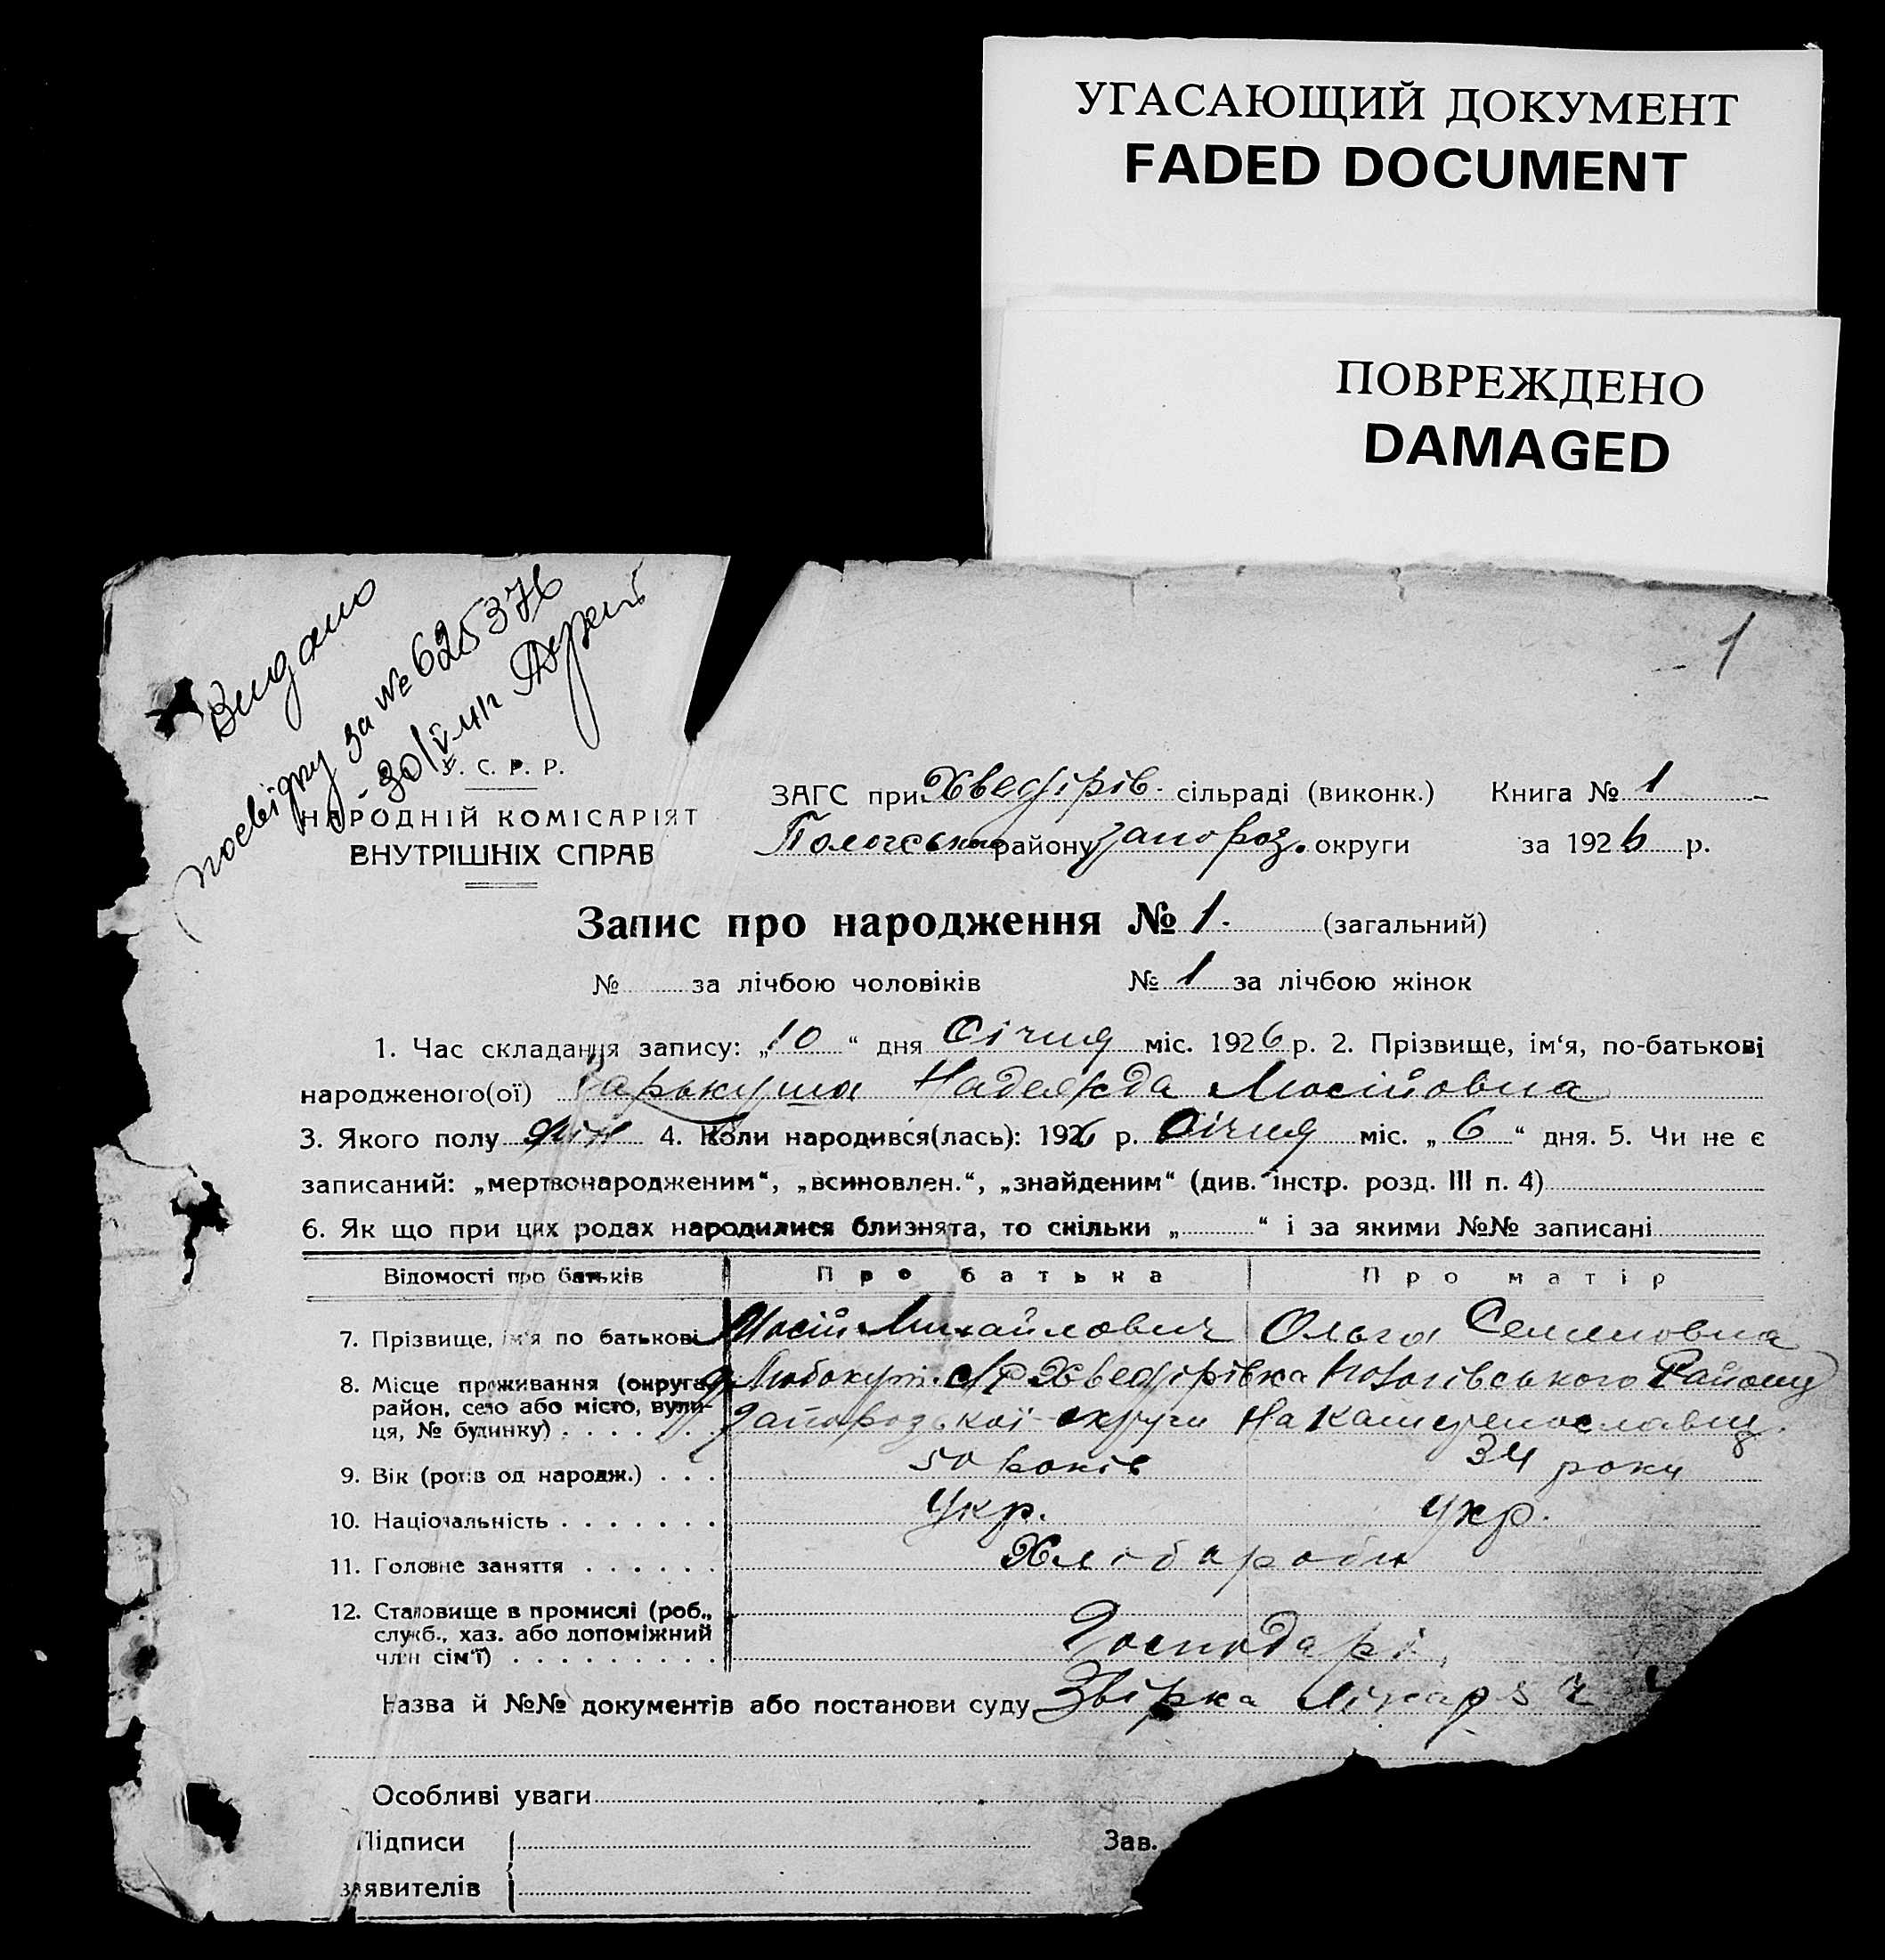 УГАСАЮЩИЙ ДОКУМЕНТ
FADED DOCUMENT
ПОВРЕЖДЕНО
DAMAGED
1
Видано
посвідку за № 625376
30/V
У. С. Р. Р.
НАРОДНІЙ КОМІСАРІЯТ
ВНУТРІШНІХ СПРАВ
ЗАГС при Хведірів. сільраді (виконк.) Книга № 1
району Запороз. округи за 1926 р.
Запис про народження № 1. (загальний)
№ за лічбою чоловіків № 1 за лічбою жінок
1. Час складання запису: „10“ дня Січня міс. 1926 р. 2. Прізвище, ім‘я, по-батькові
народженого(ої) Гарькуша Надежда Мосійовна
3. Якого полу жін 4. Коли народився(лась): 1926 р. Січня міс. „6“ дня. 5. Чи не є
записаний: „мертвонародженим“, „всиновлен.“, „знайденим“ (див. інстр. розд. III п. 4)
6. Як що при цих родах народилися близнята, то скільки „ “ і за якими №№ записані
Відомості про батьків Про батька Про матір
7. Прізвище, ім‘я по батькові Мосій Михайлович Ольга Семеновна
8. Місце проживання (округа, Хведірівка Пологівського Району
район, село або місто, вули- Запорозької округи На Катеринославщ.
ця, № будинку)
9. Вік (років од народж.) 50 років 34 роки
10. Національність Укр. Укр.
11. Головне заняття Хлібароби
12. Становище в промислі (роб.,
служб., хаз. або допоміжний Господарі
член сім‘ї)
Назва й №№ документів або постанови суду Звірка
Особливі уваги
Підписи Зав.
заявителів